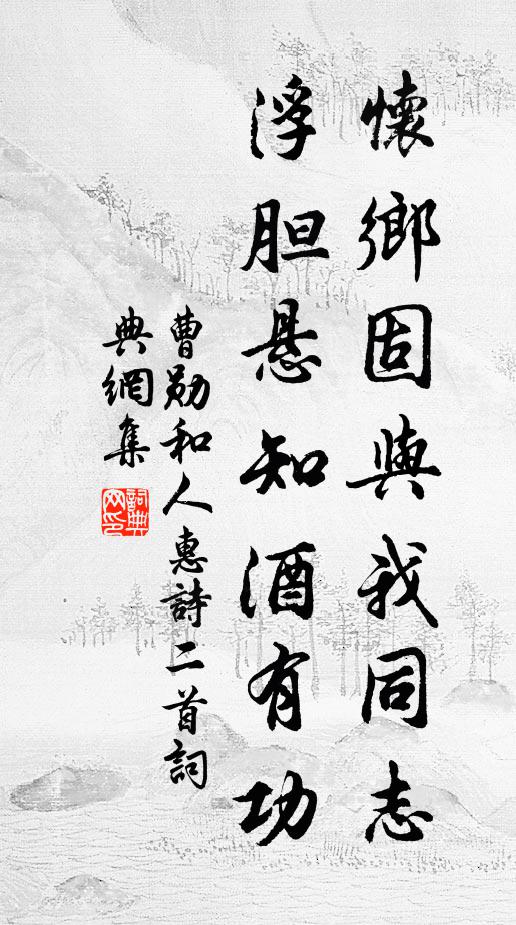 懷鄉固與我同志
浮胆悬知酒有功
曹勋和人惠詩二首詞
典網集
詞典網印